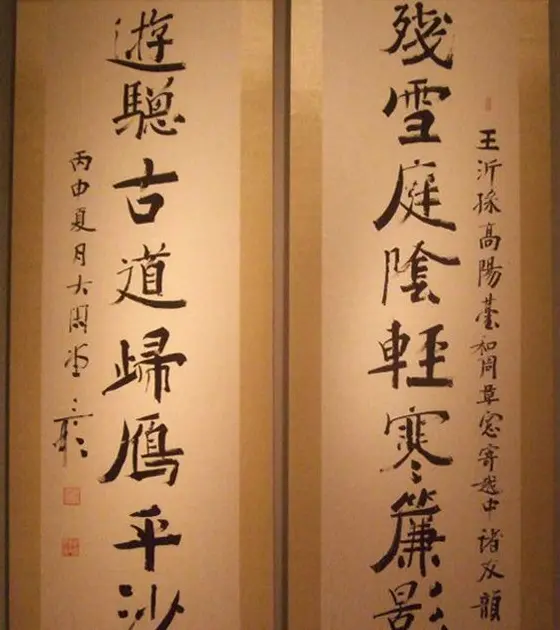 王沂孫高陽臺和周草窓寄越中諸友韻
殘雪庭陰輕寒簾影
遊驄古道歸鴈平沙
丙申夏月大